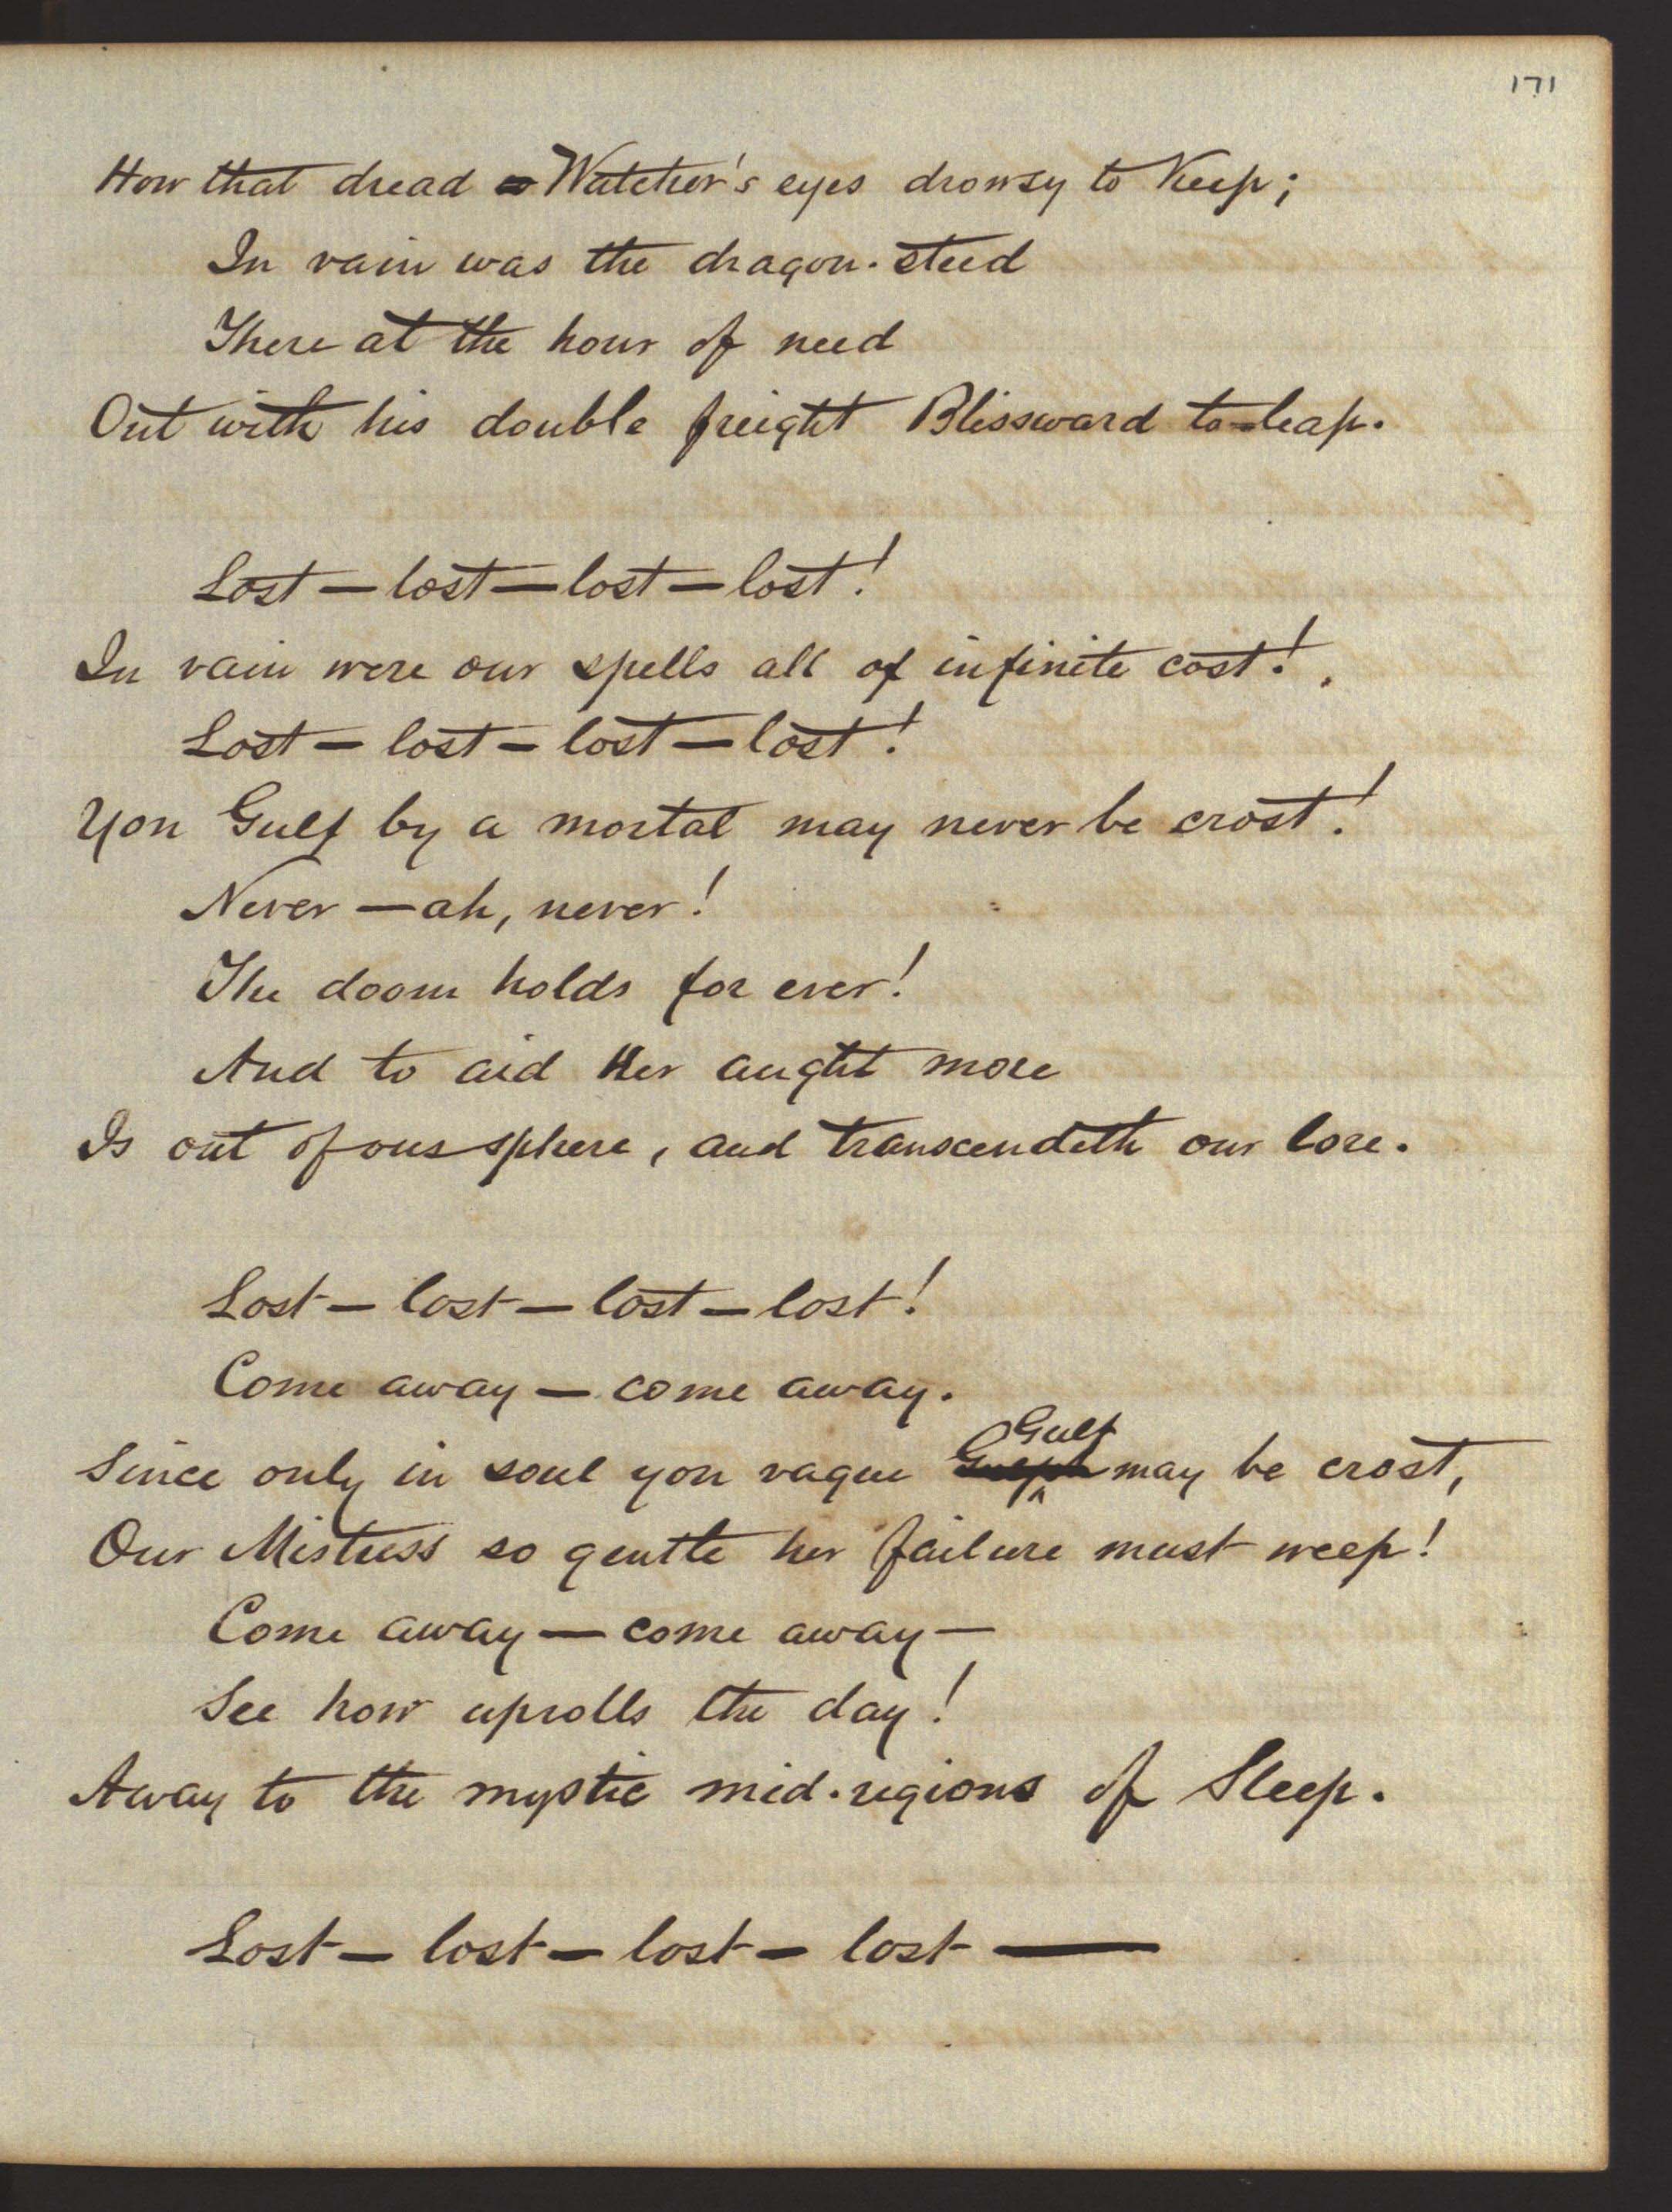 171
How that dread Watcher's eyes drowsy to Keep;
In vain was the dragon-steed
There at the hour of need
Out with his double freight Blissward to leap.
Lost — lost — lost — lost!
In vain were our spells all of infinite cost!
Lost — lost — lost — lost!
Yon Gulf by a mortal may never be crost!
Never — ah, never!
The doom holds for ever!
And to aid Her aught more
Is out of our sphere, and transcendeth our lore.
Lost — lost — lost — lost!
Come away — come away.
Since only in soul yon vague Gulf may be crost,
Our Mistress so gentle her failure must weep!
Come away — come away —
See how uprolls the day!
Away to the mystic mid-regions of Sleep.
Lost — lost — lost — lost —